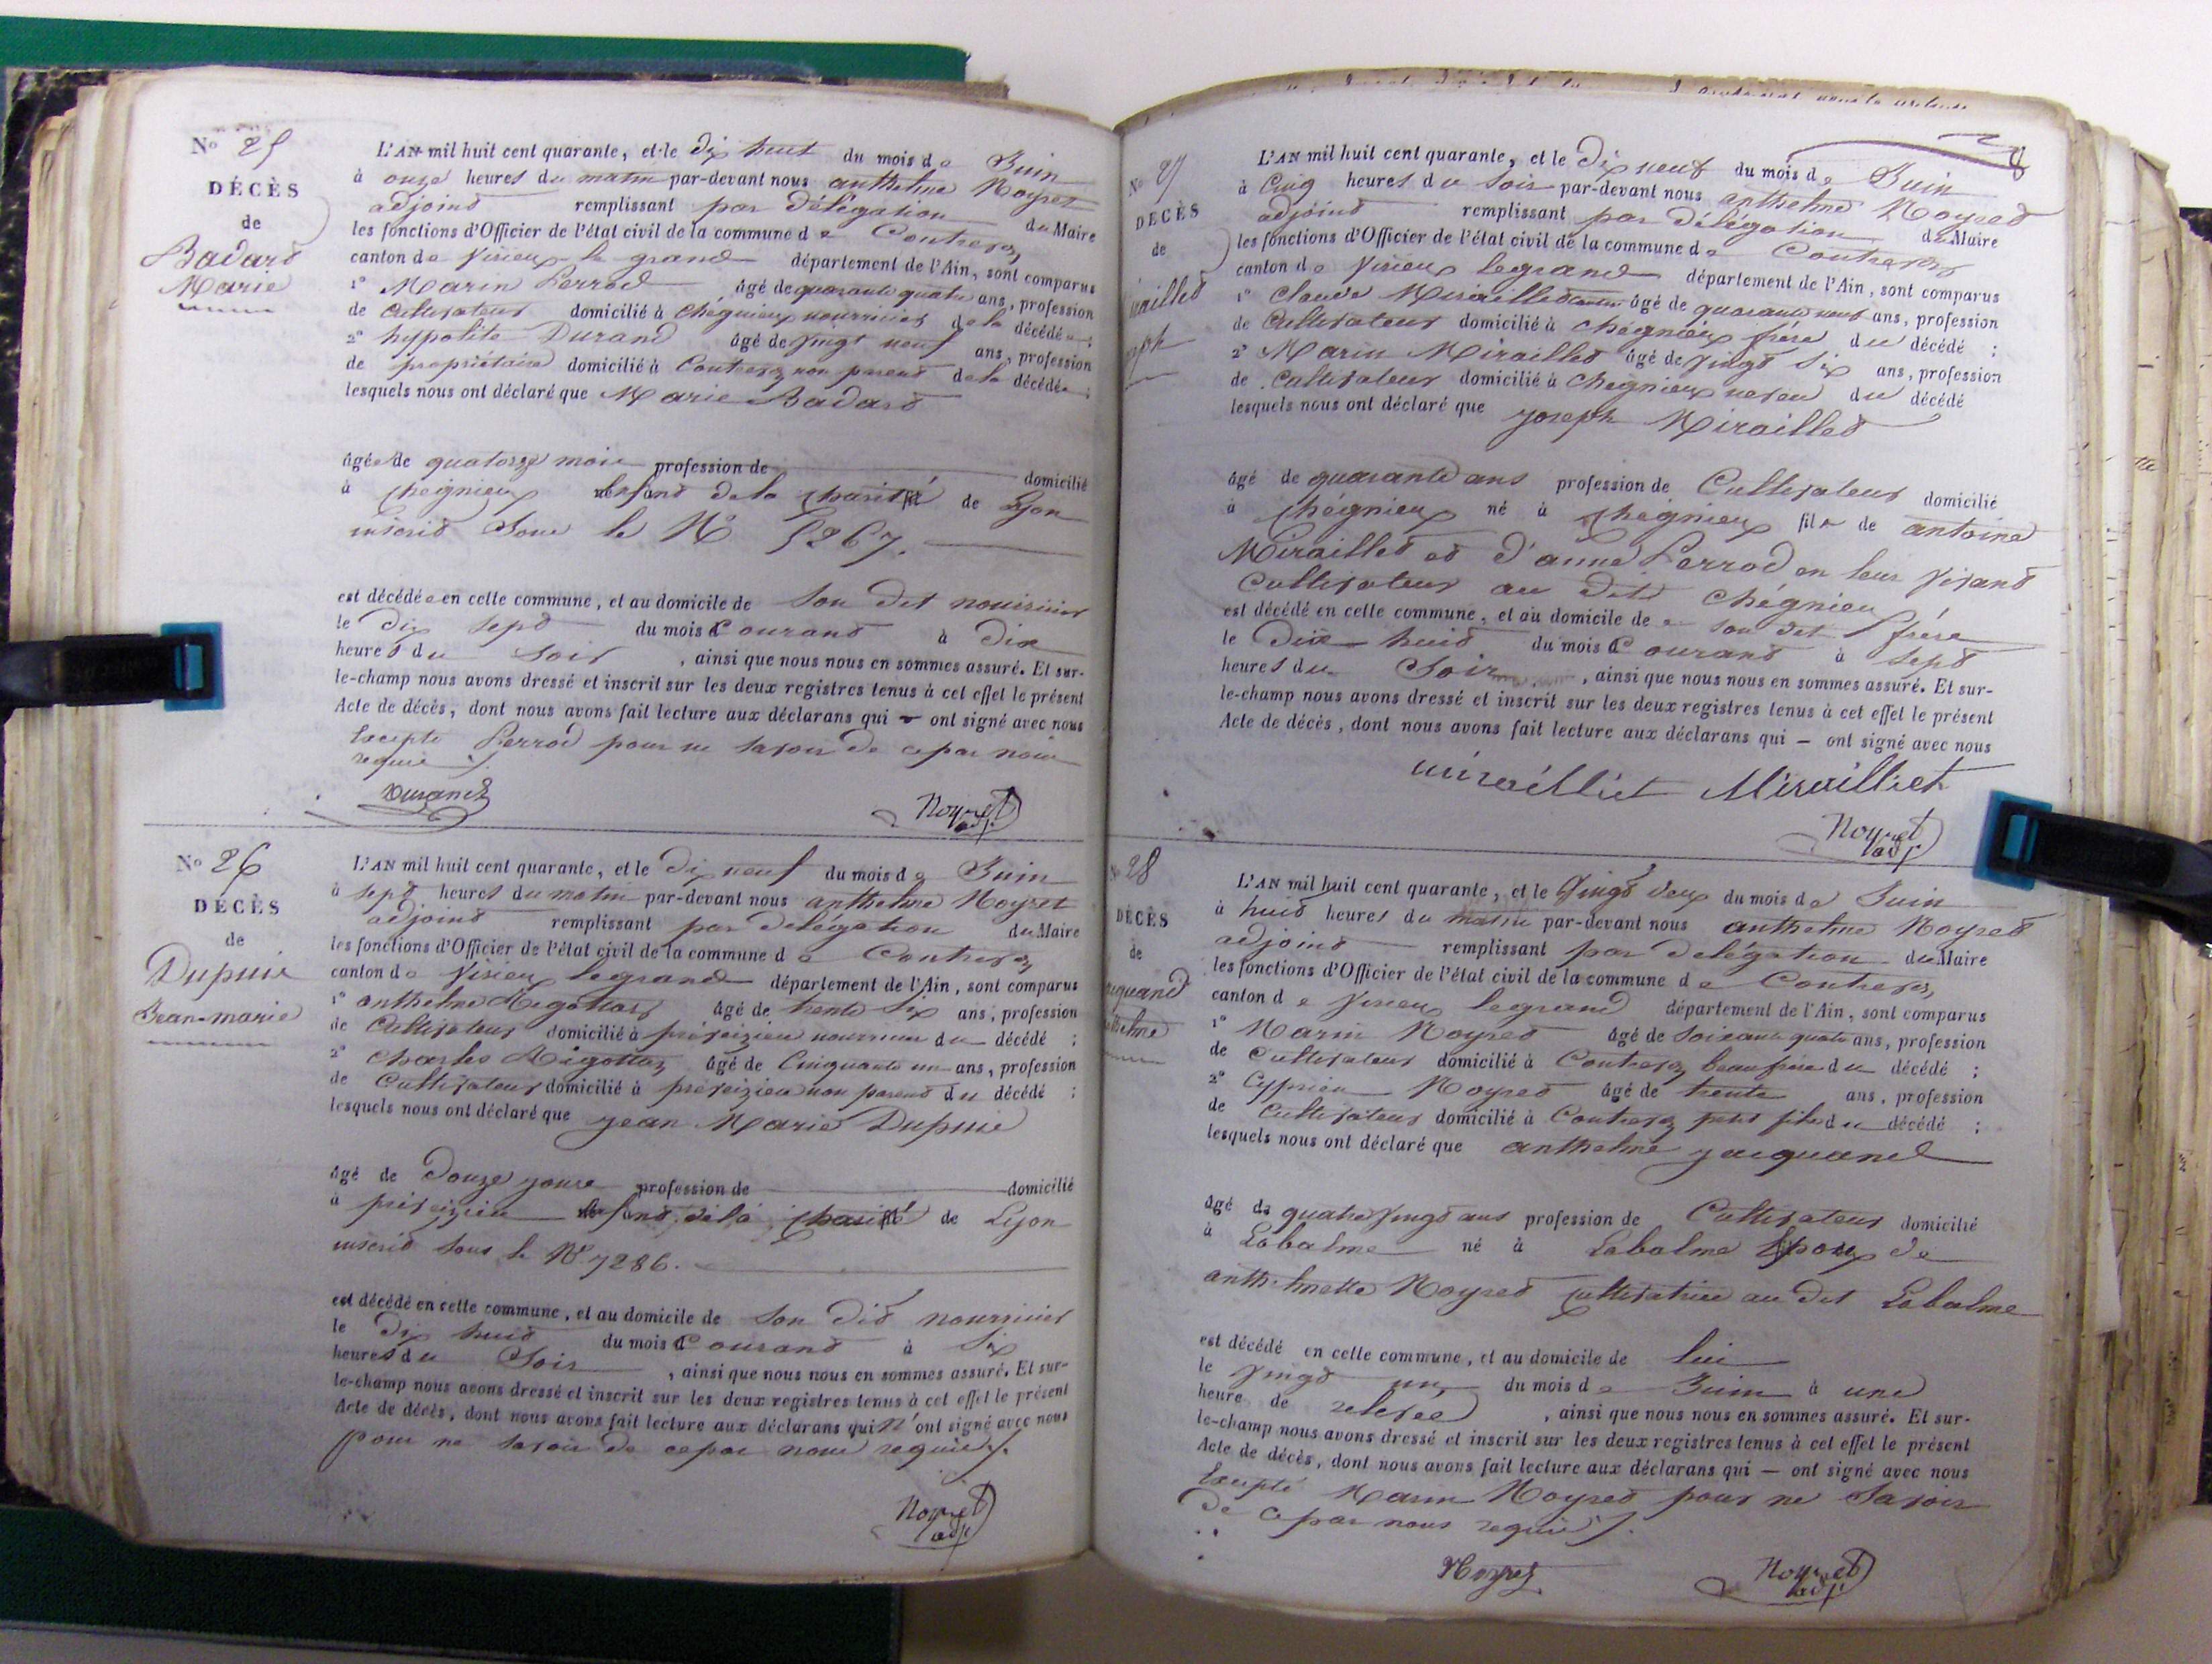 No 25
DÉCÈS
de
Badard
Marie
L'AN mil huit cent quarante, et le dix huit du mois de Juin
à onze heures du matin par-devant nous anthelme Noyret
adjoint remplissant par délégation du Maire
les fonctions d'Officier de l'état civil de la commune de Contrevoz
canton de Virieu le grand département de l'Ain, sont comparus
1° Marin Perrod âgé de quarante quatre ans, profession
de cultivateur domicilié à chégnieux nourricier de la décédée;
2° hypolite Durand âgé de vingt neuf ans, profession
de propriétaire domicilié à Contrevoz non parent de la décédée;
lesquels nous ont déclaré que Marie Badard
âgée de quatorze mois profession de domicilié
à cheignieux enfant de la charité de Lyon
inscrit Sous le No 5267.
est décédée en cette commune, et au domicile de Son dit nourricier
le dix Sept du mois Courant à dix
heures du Soir, ainsi que nous nous en sommes assuré. Et sur-
le-champ nous avons dressé et inscrit sur les deux registres tenus à cet effet le présent
Acte de décès, dont nous avons fait lecture aux déclarans qui ont signé avec nous
Excepté Perrod pour ne savoir de ce par nous
requis ./.
Durand Noyret adj.
No 26
DÉCÈS
de
Dupuis
Jean-marie
L'AN mil huit cent quarante, et le dix neuf du mois de Juin
à sept heures du matin par-devant nous anthelme Noyret
adjoint remplissant par delégation du Maire
les fonctions d'Officier de l'état civil de la commune de Contrevoz
canton de Virieu legrand département de l'Ain, sont comparus
1° anthelme Rigottaz âgé de trente Six ans, profession
de Cultivateur domicilié à préveizieu nourricier du décédé;
2° Charles Rigottaz âgé de Cinquante un ans, profession
de Cultivateur domicilié à préveizieu non parent du décédé;
lesquels nous ont déclaré que jean Marie Dupuis
âgé de Douze jours profession de domicilié
à préveizieu enfant de la charité de Lyon
inscrit sous le No 7286.
est décédé en cette commune, et au domicile de Son dit nourricier
le dix huit du mois Courant à Six
heures du Soir, ainsi que nous nous en sommes assuré. Et sur-
le-champ nous avons dressé et inscrit sur les deux registres tenus à cet effet le présent
Acte de décès, dont nous avons fait lecture aux déclarans qui n'ont signé avec nous
pour ne savoir de ce par nous requis ./.
Noyret adj.
No 27
DÉCÈS
de
L'AN mil huit cent quarante, et le dix neuf du mois de Juin
à Cinq heures du Soir par-devant nous anthelme Noyret
adjoint remplissant par délégation du Maire
les fonctions d'Officier de l'état civil de la commune de Contrevoz
canton de Virieux legrand département de l'Ain, sont comparus
1° Claude Miraillet âgé de quarante neuf ans, profession
de Cultivateur domicilié à chégnieux frère du décédé;
2° Marin Miraillet âgé de vingt Six ans, profession
de Cultivateur domicilié à chegnieux neveu du décédé
lesquels nous ont déclaré que joseph Miraillet
âgé de quarante ans profession de Cultivateur domicilié
à chégnieux né à chégnieux fils de antoine
Miraillet et d'anne Perrod en leur vivant
Cultivateur au dit chégnieu
est décédé en cette commune, et au domicile de Son dit frère
le Dix-huit du mois Courant à Sept
heures du Soir, ainsi que nous nous en sommes assuré. Et sur-
le-champ nous avons dressé et inscrit sur les deux registres tenus à cet effet le présent
Acte de décès, dont nous avons fait lecture aux déclarans qui — ont signé avec nous
mirailliet Miraillliet
Noyret adj.
No 28
DÉCÈS
de
L'AN mil huit cent quarante, et le Vingt deux du mois de Juin
à huit heures du matin par-devant nous anthelme Noyret
adjoint remplissant par delégation du Maire
les fonctions d'Officier de l'état civil de la commune de Contrevoz
canton de Virieu legrand département de l'Ain, sont comparus
1° Marin Noyret âgé de Soixante quatre ans, profession
de cultivateur domicilié à Contrevoz beau frère du décédé;
2° Cyprien Noyret âgé de trente ans, profession
de Cultivateur domicilié à Contrevoz petit fils du décédé;
lesquels nous ont déclaré que anthelme jacquand
âgé de quatre vingt ans profession de Cultivateur domicilié
à Labalme né à Labalme Epoux de
anthelmette Noyret cultivatrice au dit Labalme
est décédé en cette commune, et au domicile de lui
le vingt un du mois de Juin à une
heure de relevée, ainsi que nous nous en sommes assuré. Et sur-
le-champ nous avons dressé et inscrit sur les deux registres tenus à cet effet le présent
Acte de décès, dont nous avons fait lecture aux déclarans qui — ont signé avec nous
Excepté Marin Noyret pour ne Savoir
de ce par nous requis ./.
Noyret Noyret adj.